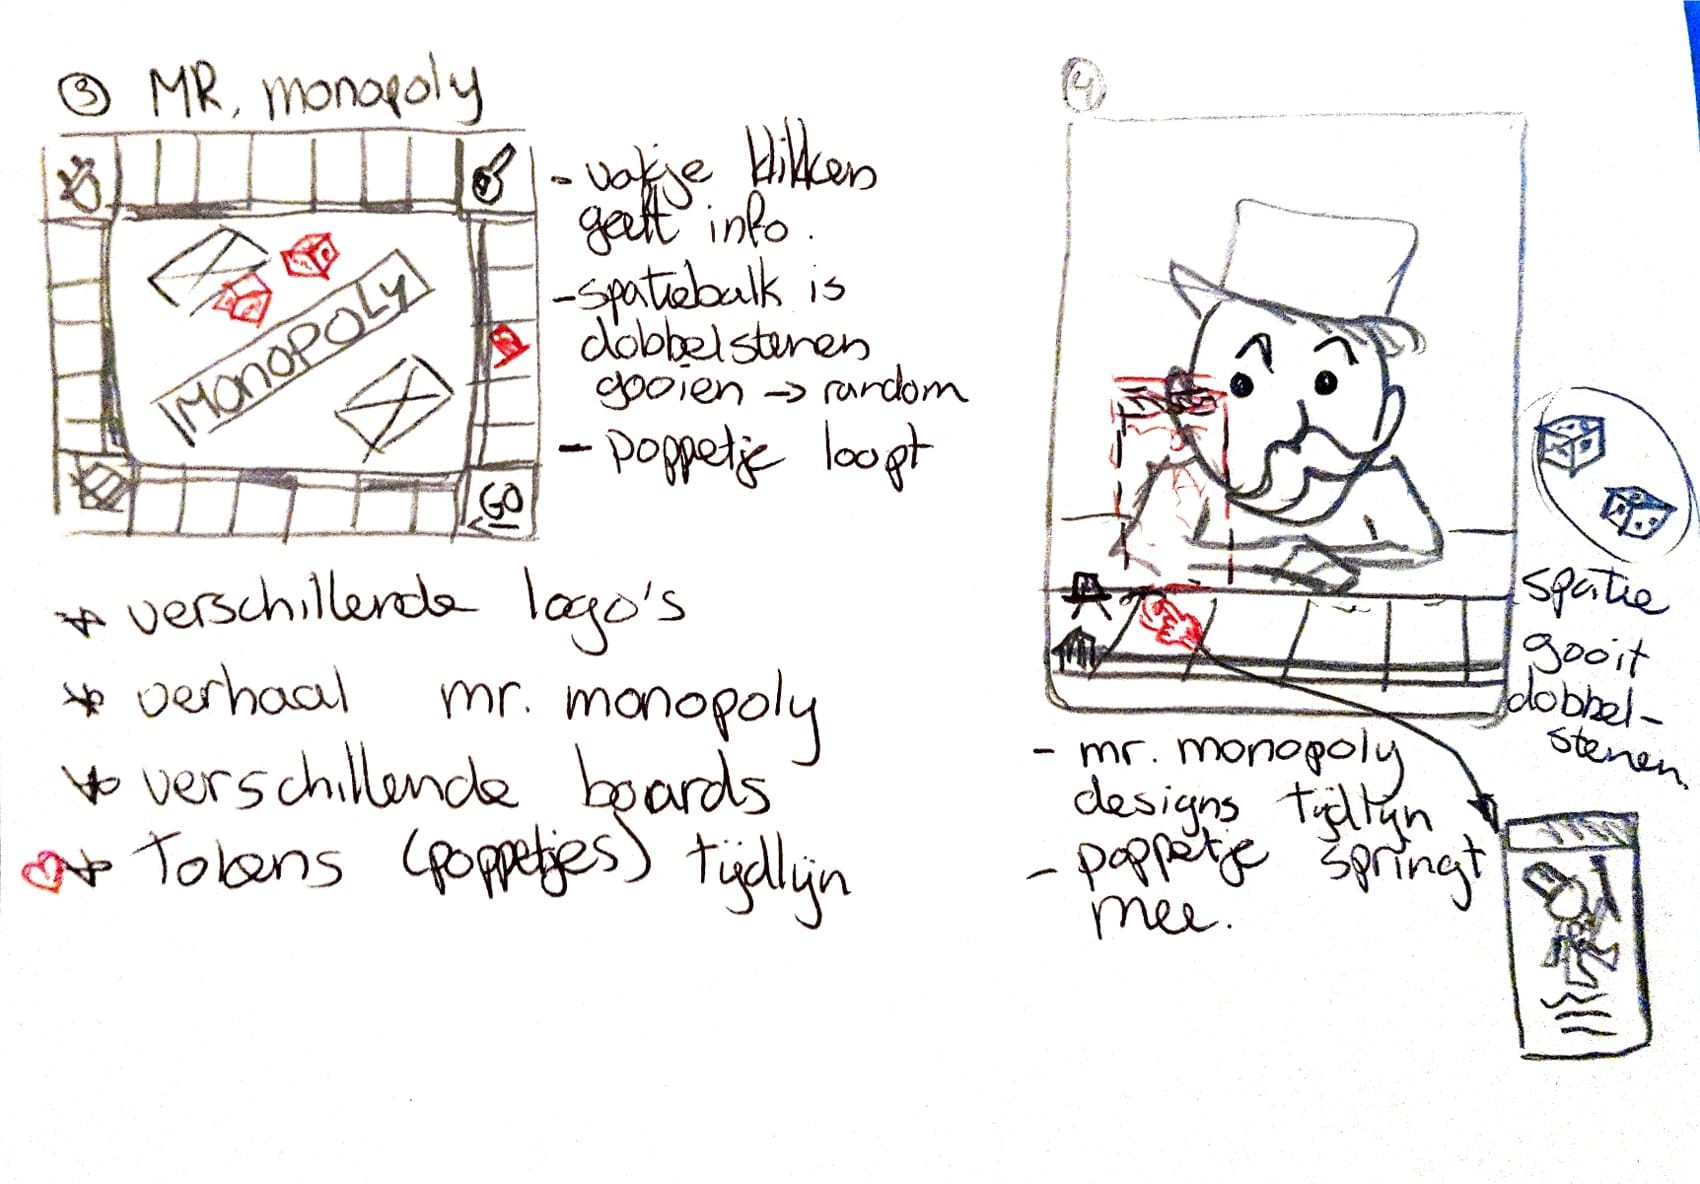 ③ MR. monopoly
MONOPOLY
GO
- vakje klikken
geeft info.
- spatiebalk is
dobbelstenen
gooien → random
- poppetje loopt
* verschillende logo's
* verhaal mr. monopoly
* verschillende boards
* Tokens (poppetjes) tijdlijn
④
spatie
gooit
dobbel-
stenen
- mr. monopoly
designs tijdlijn
- poppetje springt
mee.